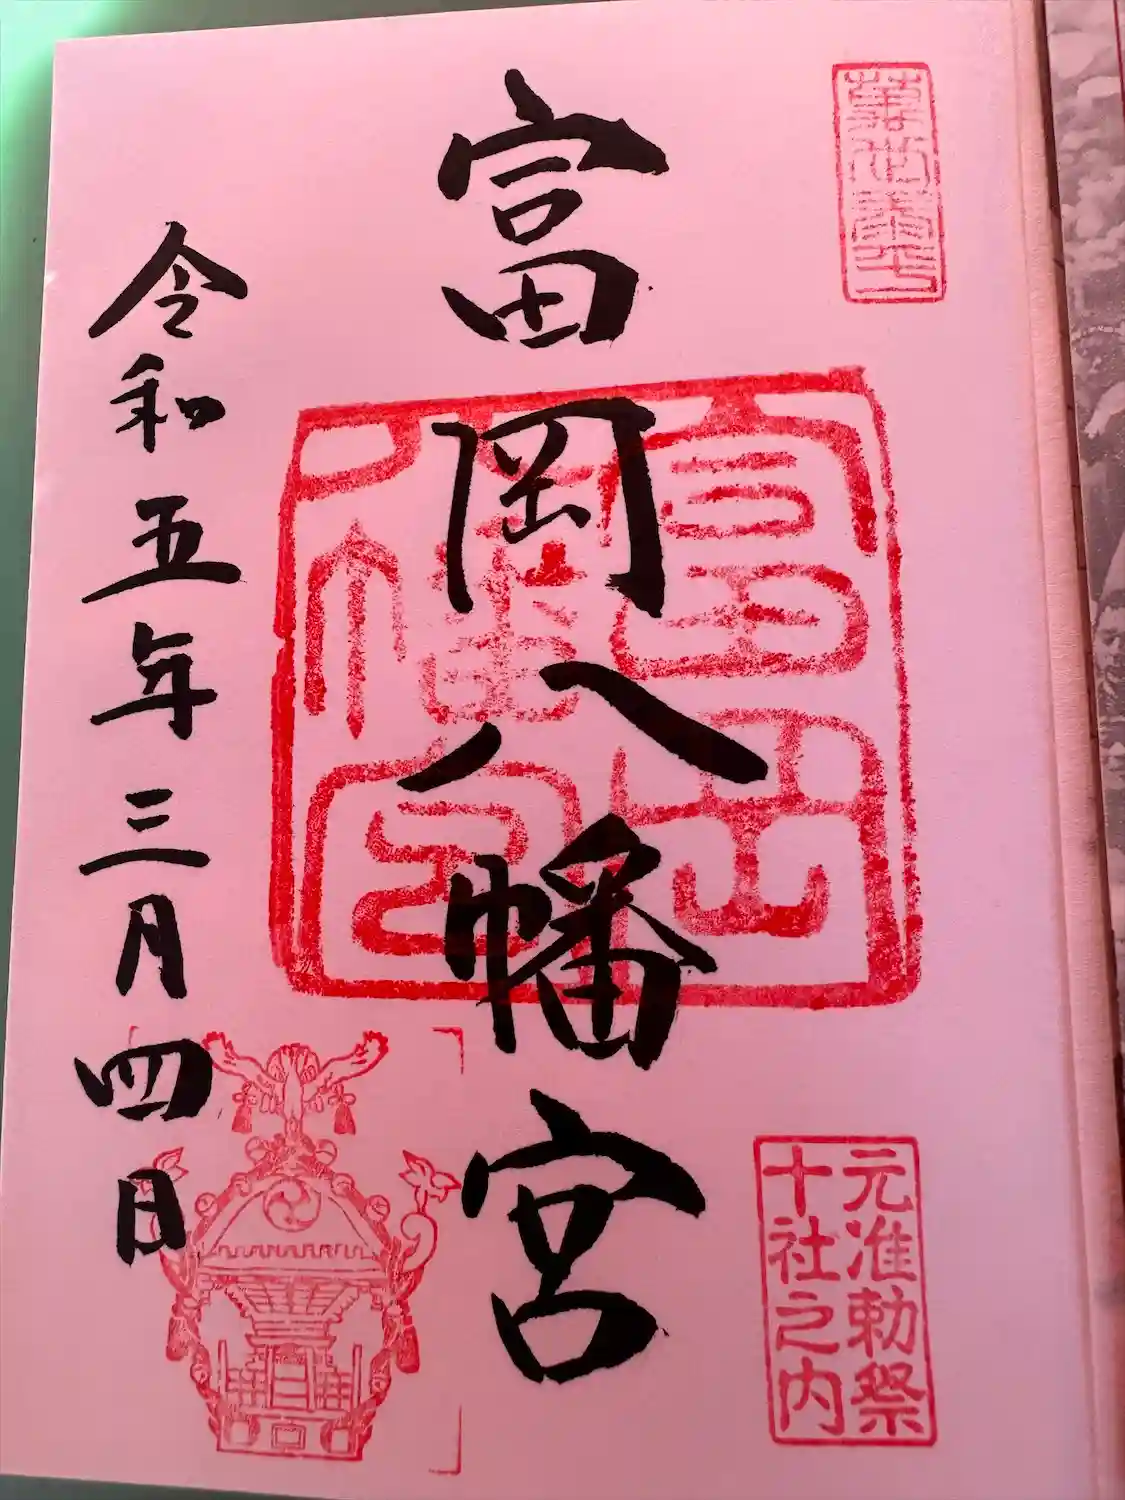 富岡八幡宮
元准勅祭
十社之内
富岡八幡宮
令和五年三月四日